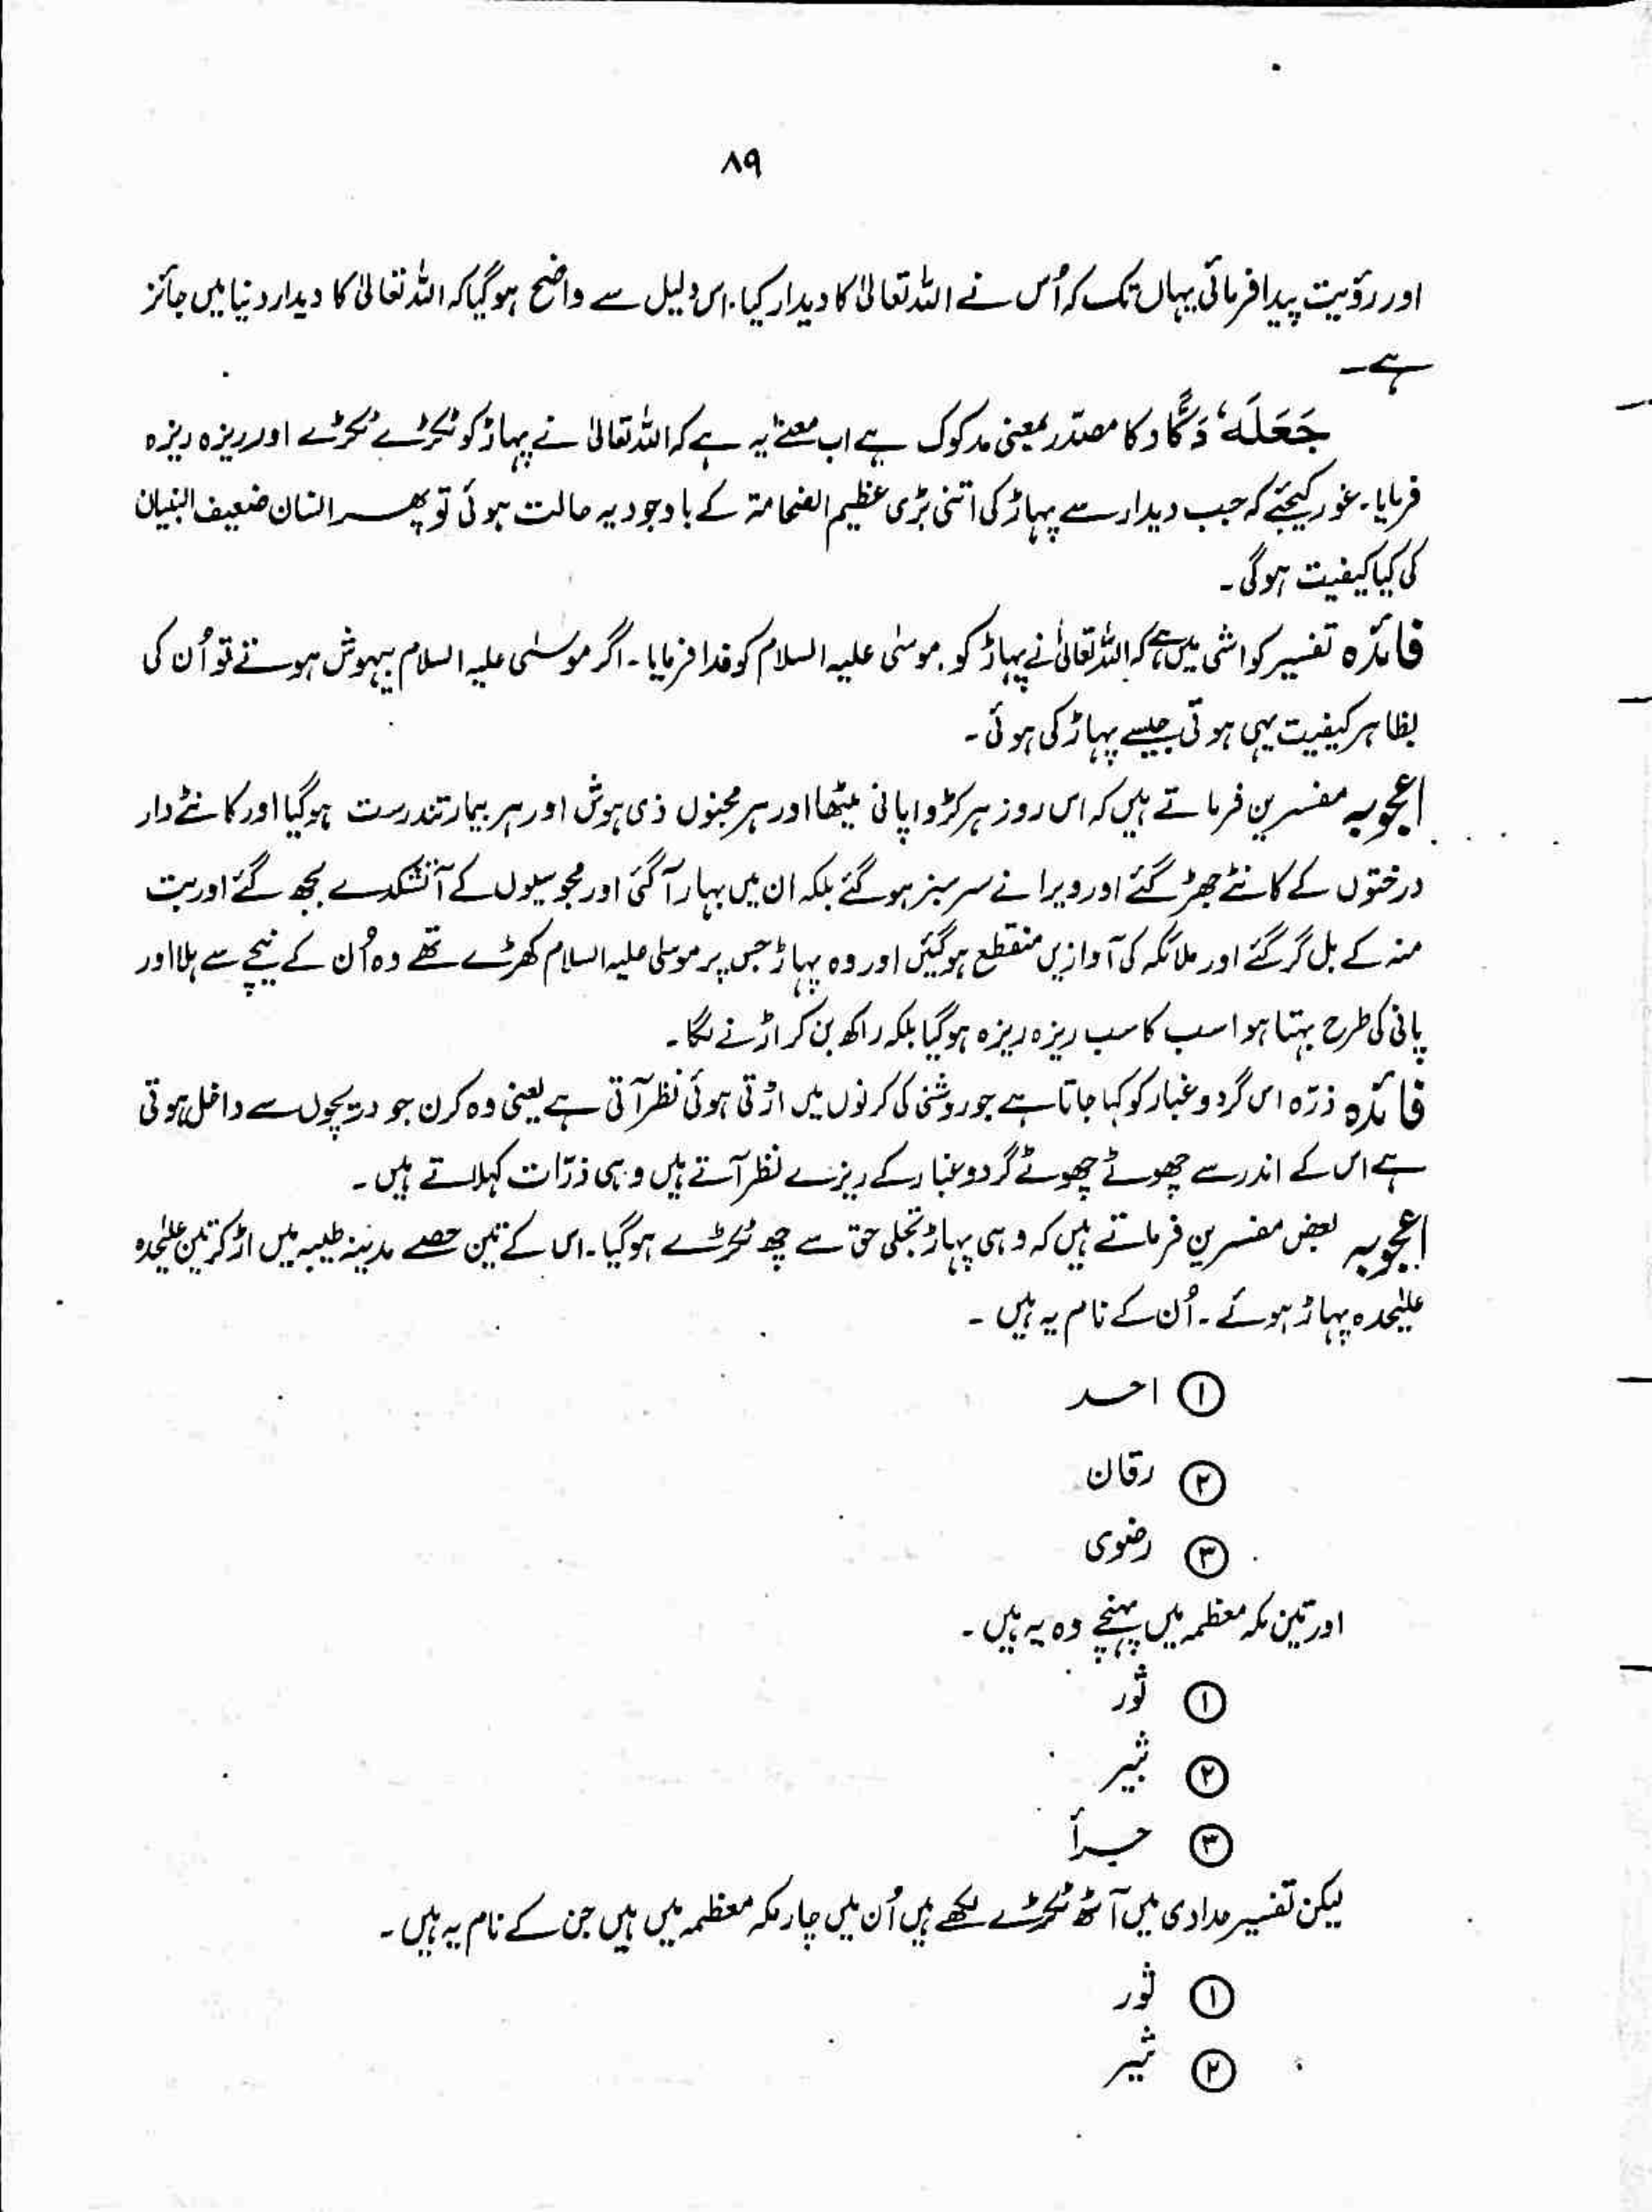 ۸۹
اور رؤیت پیدا فرمائی یہاں تک کہ اُس نے اللہ تعالیٰ کا دیدار کیا۔ اس دلیل سے واضح ہو گیا کہ اللہ تعالیٰ کا دیدار دنیا میں جائز
ہے۔
جَعَلَهٗ دَكًّا دکا مصدر بمعنی مدکوک ہے اب معنےٰ یہ ہے کہ اللہ تعالیٰ نے پہاڑ کو ٹکڑے ٹکڑے اور ریزہ ریزہ
فرمایا۔ غور کیجئے کہ جب دیدار سے پہاڑ کی اتنی بڑی عظیم الضخامۃ کے باوجود یہ حالت ہوئی تو پھر انسان ضعیف البنیان
کی کیا کیفیت ہوگی۔
فائدہ تفسیر کواشی میں ہے کہ اللہ تعالیٰ نے پہاڑ کو۔ موسیٰ علیہ السلام کو فدا فرمایا۔ اگر موسٰی علیہ السلام بیہوش ہوتے تو اُن کی
بظاہر کیفیت یہی ہوتی جیسے پہاڑ کی ہوئی۔
اعجوبہ مفسرین فرماتے ہیں کہ اس روز ہر کڑوا پانی میٹھا اور ہر مجنوں ذی ہوش اور ہر بیمار تندرست ہوگیا اور کانٹے دار
درختوں کے کانٹے جھڑ گئے اور ویرانے سرسبز ہو گئے بلکہ ان میں بہار آگئی اور مجوسیوں کے آتشکدے بجھ گئے اور بت
منہ کے بل گر گئے اور ملائکہ کی آوازیں منقطع ہوگئیں اور وہ پہاڑ جس پر موسٰی علیہ السلام کھڑے تھے وہ اُن کے نیچے سے ہلا اور
پانی کی طرح بہتا ہوا سب کا سب ریزہ ریزہ ہوگیا بلکہ راکھ بن کر اڑنے لگا۔
فائدہ ذرّہ اس گرد و غبار کو کہا جاتا ہے جو روشنی کی کرنوں میں اڑتی ہوئی نظر آتی ہے یعنی وہ کرن جو دریچوں سے داخل ہوتی
ہے اس کے اندر سے چھوٹے چھوٹے گرد و غبار کے ریزے نظر آتے ہیں وہی ذرّات کہلاتے ہیں۔
اعجوبہ بعض مفسرین فرماتے ہیں کہ وہی پہاڑ تجلی حق سے چھ ٹکڑے ہوگیا۔ اس کے تین حصے مدینہ طیبہ میں اڑ کر تین علیٰحدہ
علیٰحدہ پہاڑ ہوئے۔ اُن کے نام یہ ہیں۔
① احد
② رقان
③ رضوی
اور تین مکہ معظمہ میں پہنچے وہ یہ ہیں۔
① ثور
② ثبیر
③ حرأ
لیکن تفسیر مدادی میں آٹھ ٹکڑے لکھے ہیں اُن میں چار مکہ معظمہ میں ہیں جن کے نام یہ ہیں۔
① ثور
② ثبیر